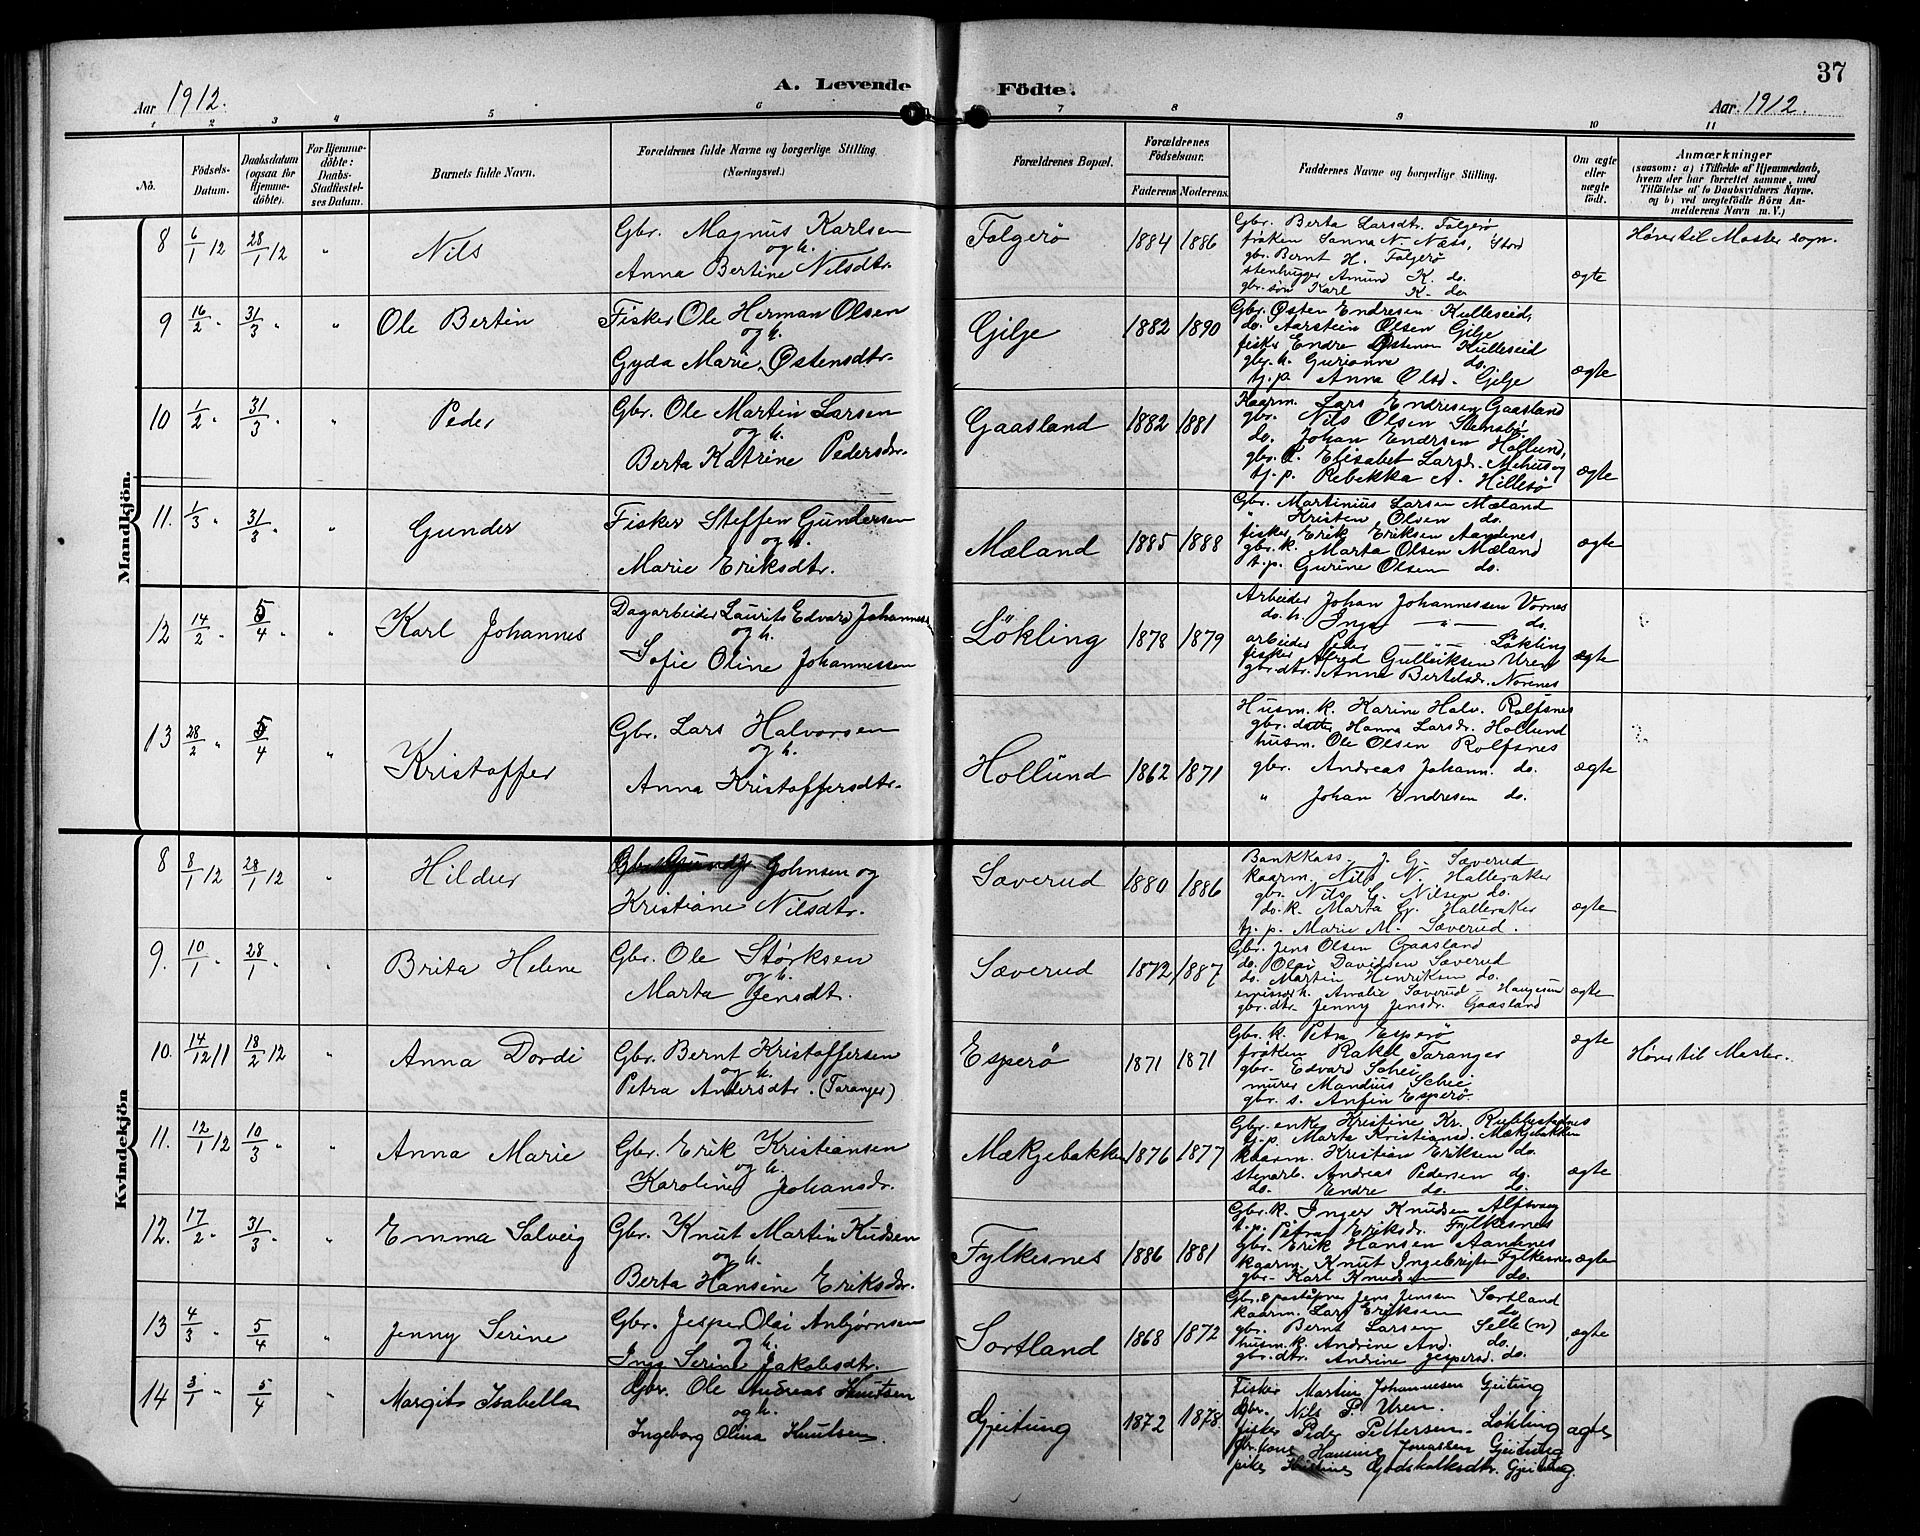 37
Aar 1912.
A. Levende Födte.
Aar 1912.
1 2 3 4 5 6 7 8 9 10 11
No.
Födsels-Datum.
Daabsdatum (ogsaa for Hjemmedöbte).
For Hjemmedöbte: Daabs-Stadfæstelses Datum.
Barnets fulde Navn.
Forældrenes fulde Navne og borgerlige Stilling. (Næringsvei.)
Forældrenes Bopæl.
Forældrenes Födselsaar.
Faderens
Moderens
Faddernes Navne og borgerlige Stilling.
Om ægte eller uægte födt.
Anmærkninger
(saasom: a) i Tilfælde af Hjemmedaab, hvem der har forrettet samme, med Tilföielse af to Daabsvidners Navne, og b) ved uægtefödte Börn Anmelderens Navn m. V.)
Mandkjön.
8 6/1 12 28/1 12 " Nils
Gbr. Magnus Karlsen
og h.
Anna Bertine Nilsdtr.
Folgerø 1884 1886
Gbr. Berta Larsdtr. Folgerø
frøken Sanna N. Næss, Stord
gbr. Bernt H. Folgerø
stenhugger Amund K. do.
gbr. søn Karl K. do
ægte
Hører til Moster sogn.
9 16/2 " 31/3 " " Ole Bertin
Fisker Ole Herman Olsen
og h.
Gyda Marie Østensdtr.
Gilje 1882 1890
Gbr. Østen Endresen Kulleseid,
do. Aarstein Olsen Gilje
fisker Endre Østensen Kulleseid
gbr. h. Gurianna do.
tj. p. Anna Olsd. Gilje
ægte
10 1/2 " 31/3 " " Peder
Gbr. Ole Martin Larsen
og h.
Berta Katrine Pedersdr.
Gaasland 1882 1881
Kaarm. Lars Endresen Gaasland
gbr. Nils Olsen Stensbø
do. Johan Endrsen Hollund,
gbr. k. Elisabet Larsd. Mehus og
tj. p. Rebekka A. Hillesø
ægte
11. 1/3 " 31/3 " " Gunder
Fisker Steffen Gundersen
og h.
Marie Eriksdtr.
Mæland 1885 1888
Gbr. Martinius Larsen Mæland
" Kristen Olsen do.
fisker Erik Eriksen Aandenes
gbr. k. Marta Olsen Mæland
t. p. Gurine Olsen do.
ægte
12 14/2 " 5/4 " " Karl Johannes
Dagarbeider Laurits Edvard Johanness.
og h.
Sofie Oline Johannessen
Løkling 1878 1879
Arbeider Johan Johannessen Vornes
do. h. Inga — " — do.
arbeider Peder — " — Løkling
fisker Alfred Gulliksen Uren
gbr. dtr. Anna Bertelsdr. Norenes
ægte
13 28/2 " 5/4 " Kristoffer
Gbr. Lars Halvorsen
og h.
Anna Kristoffersdtr.
Hollund 1862 1871
Husm. k. Karine Halv. Rolfsnes
gbr. datter Hanna Larsdr. Hollund
husm. Ole Olsen Rolfsnes
gbr. Andreas Johann. do.
" Johan Endresen do.
ægte
Kvindekjön
8 8/1 12 28/1 12 " Hildur
Johnsen og
Kristiane Nilsdtr.
Sæverud 1880 1886
Bankkass. J. G. Sæverud
kaarm. Nils N. Halleraker
gbr. Nils G. Nilsen do.
do. k. Marta G. Halleraker
tj. p. Marie M. Sæverud.
ægte
9. 10/1 " 28/1 " Brita Helene
Gbr. Ole Størksen
og h.
Marta Jensdtr.
Sæverud 1872 1887
Gbr. Jens Olsen Gaasland
do. Olai Davidsen Sæverud
do. Martin Henriksen do.
emissær h. Amalie Sæverud - Haugesun
gbr. dtr. Jenny Jensdr. Gaasland
ægte
10. 14/12 11 18/2 12 " Anna Dordi
Gbr. Bernt Kristoffersen
og h.
Petra Andersdtr. (Taranger)
Esperø 1871 1871
Gbr. k. Petra Esperø
frøken Rakel Taranger
gbr. Edvard Schei
murer Mandius Schei
gbr. s. Anfin Esperø
ægte
Hører til Moster.
11. 12/1 12 10/3 " " Anna Marie
Gbr. Erik Kristiansen
og h.
Karoline Johansdr.
Mækjebakken 1876 1877
Gbr. enke Kristine Kr. Rubbestadnes
tj. p. Marta Kristiansd. Mækjebakken
kaarm. Kristian Eriksen do.
stenarb. Andreas Pedersen do.
do. Endre do. do.
ægte
12. 17/2 " 31/3 " " Emma Solveig
Gbr. Knut Martin Kudsen
og h.
Berta Hansine Eriksdr.
Fylkesnes 1886 1881
Gbr. k. Inger Knudsen Alfsvaag
t. p. Petra Eriksdr. Fylkesnes
gbr. Erik Hansen Aandenes
kaarm. Knut Ingebrigtsen Fylkesnes
gbr. Karl Knudsen do.
ægte
13 4/3 " 5/4 " Jenny Serine
Gbr. Jesper Olai Anbjørnsen
og h.
Inga Serine Jakobsdtr.
Sortland 1868 1872
Gbr. & postaapner Jens Jensen Sortland
kaarm. Lars Eriksen do.
gbr. Bernt Larsen Selle (n)
husm. k. Andrine And. do.
gbr. dtr. Andrine Jespersd. do.
ægte
14 3/1 " 5/4 " Margit Isabella
Gbr. Ole Andreas Knutsen
og h.
Ingeborg Olina Knutsen.
Gjeitung 1872 1878
Fisker Martin Johannesen Gjeitung
Gbr. Nils P. Uren.
fisker Peder Pettersen. Løkling
Gbr. kone Hansine Jonassen Gjeitung
pike Godskalksdtr. Gjeitung.
ægte